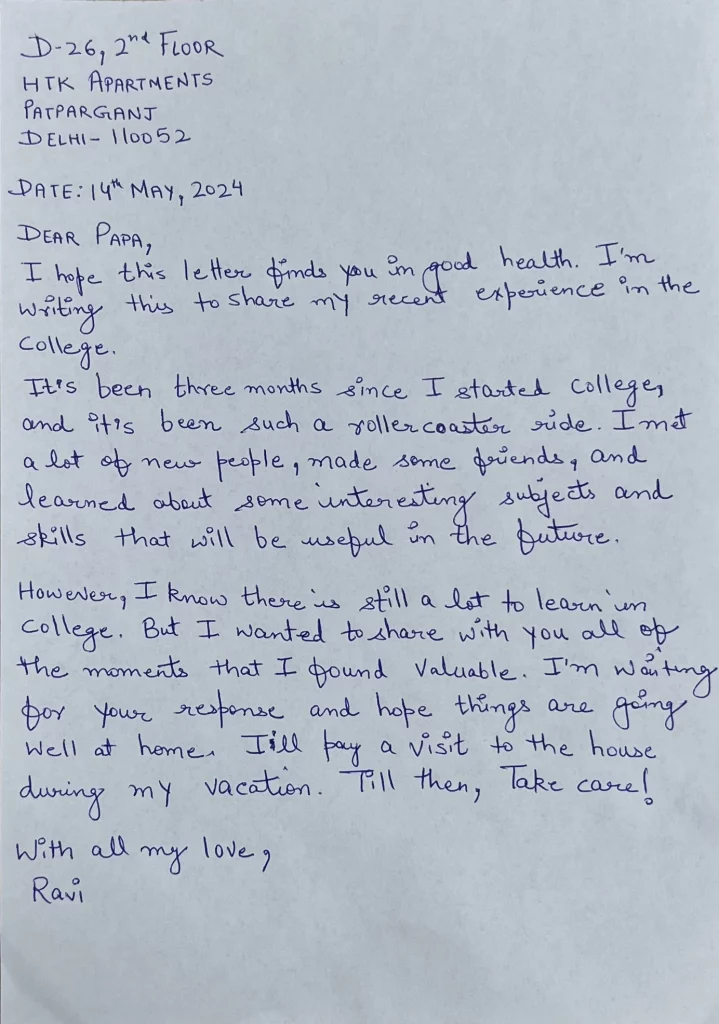 D-26, 2nd FLOOR
HTK APARTMENTS
PATPARGANJ
DELHI- 110052
DATE: 14th MAY, 2024
DEAR PAPA,
I hope this letter finds you in good health. I'm
writing this to share my recent experience in the
college.
It's been three months since I started college,
and it's been such a rollercoaster ride. I met
a lot of new people, made some friends, and
learned about some interesting subjects and
skills that will be useful in the future.
However, I know there is still a lot to learn in
college. But I wanted to share with you all of
the moments that I found valuable. I'm waiting
for your response and hope things are going
well at home. I'll pay a visit to the house
during my vacation. Till then, Take care!
With all my love,
Ravi